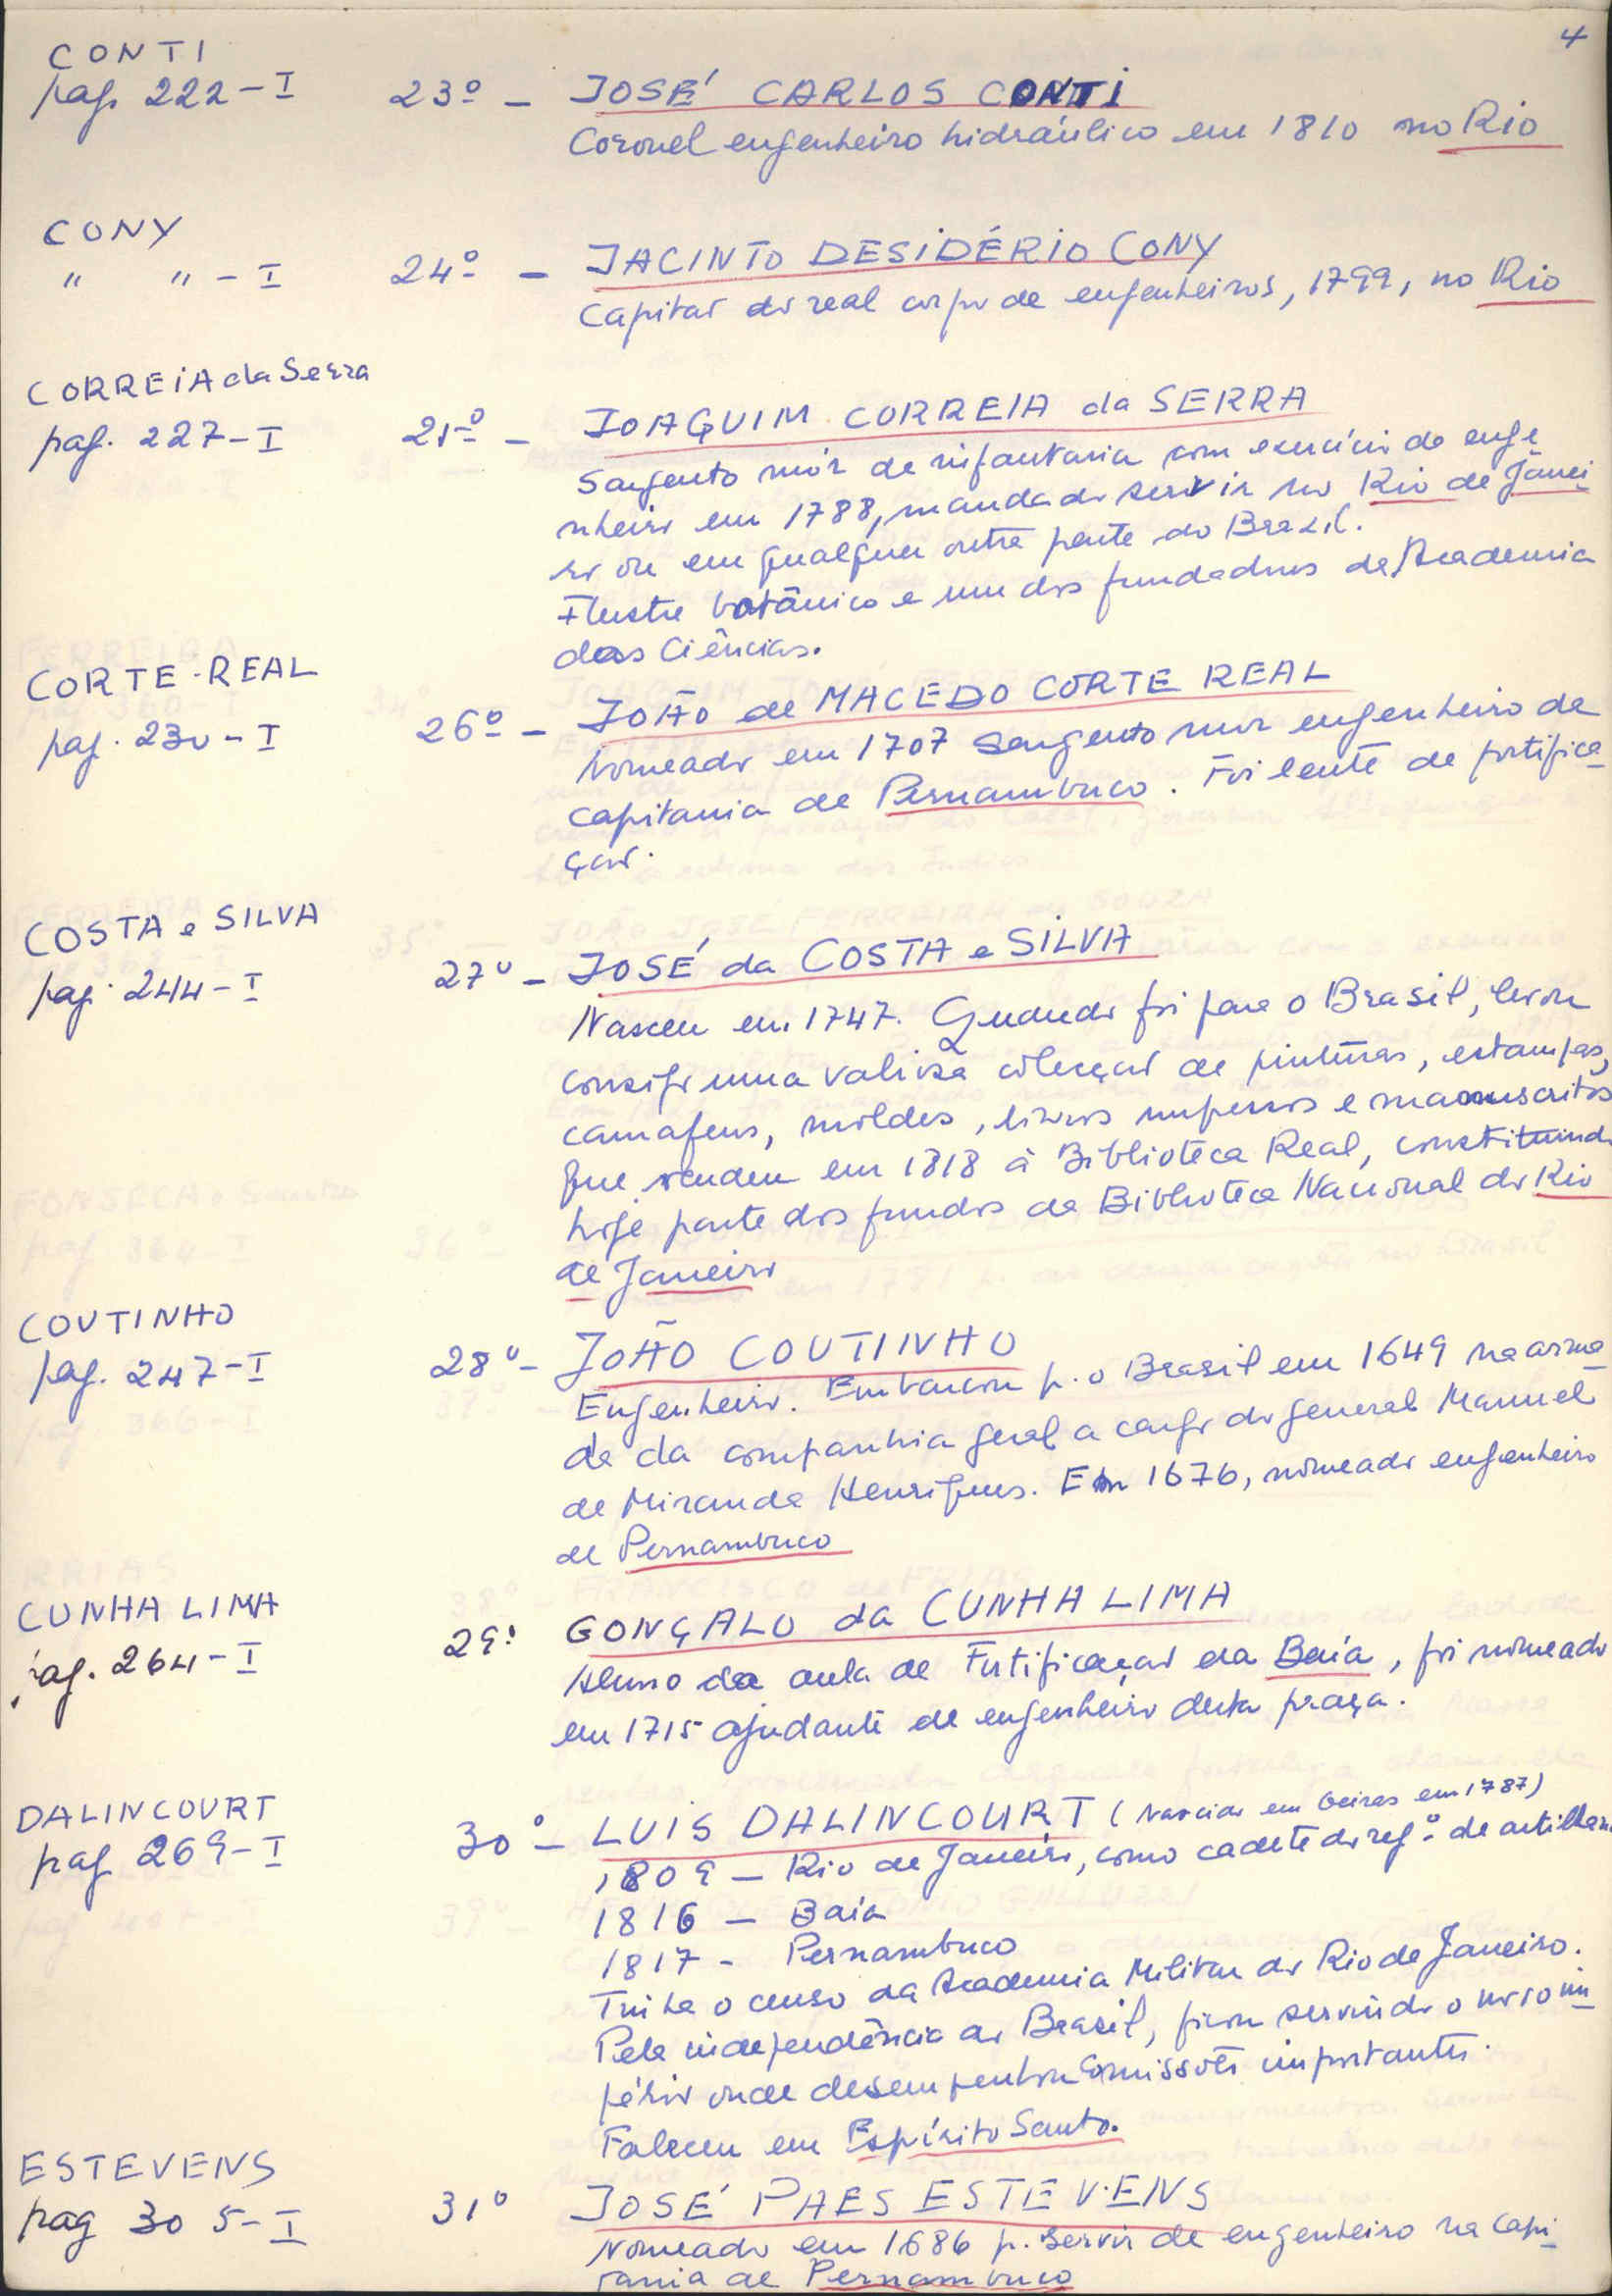 4
CONTI
pag. 222-I
23º - JOSÉ CARLOS CONTI
Coronel engenheiro hidráulico em 1810 no Rio
CONY
" " - I
24º - JACINTO DESIDÉRIO CONY
Capitão do real corpo de engenheiros, 1799, no Rio
CORREIA da Serra
pag. 227-I
25º - JOAQUIM CORREIA da SERRA
Sargento mór de infantaria com exercício de enge
nheiro em 1788, mandado servir no Rio de Janei
ro ou em qualquer outra parte do Brazil.
Ilustre botânico e um dos fundadores da Academia
das Ciências.
CORTE-REAL
pag. 230-I
26º - JOÃO de MACEDO CORTE REAL
Nomeado em 1707 Sargento mor engenheiro da
capitania de Pernambuco. Foi lente de fortifica
ção.
COSTA e SILVA
pag. 244-I
27º - JOSÉ da COSTA e SILVA
Nasceu em 1747. Quando foi para o Brasil, levou
consigo uma valiosa colecção de pinturas, estampas,
camafeus, moldes, livros impressos e manuscritos
que vendeu em 1818 à Biblioteca Real, constituindo
hoje parte dos fundos da Biblioteca Nacional do Rio
de Janeiro
COUTINHO
pag. 247-I
28º - JOÃO COUTINHO
Engenheiro. Embarcou p. o Brasil em 1649 na arma
da da companhia geral a cargo do general Manuel
de Miranda Henriques. Em 1676, nomeado engenheiro
de Pernambuco
CUNHA LIMA
pag. 264-I
29º GONÇALO da CUNHA LIMA
Aluno da aula de Fortificação da Baía, foi nomeado
em 1715 ajudante de engenheiro desta praça.
DALINCOURT
pag 269-I
30º - LUIS DALINCOURT (Nascido em Oeiras em 1787)
1809 - Rio de Janeiro, como cadete do regº de artilharia
1816 - Baía
1817 - Pernambuco
Tinha o curso da Academia Militar do Rio de Janeiro.
Pela independência do Brasil, ficou servindo o novo im
pério onde desempenhou comissões importantes.
Faleceu em Espírito Santo.
ESTEVENS
pag 305-I
31º JOSÉ PAES ESTEVENS
Nomeado em 1686 p. servir de engenheiro na capi
tania de Pernambuco